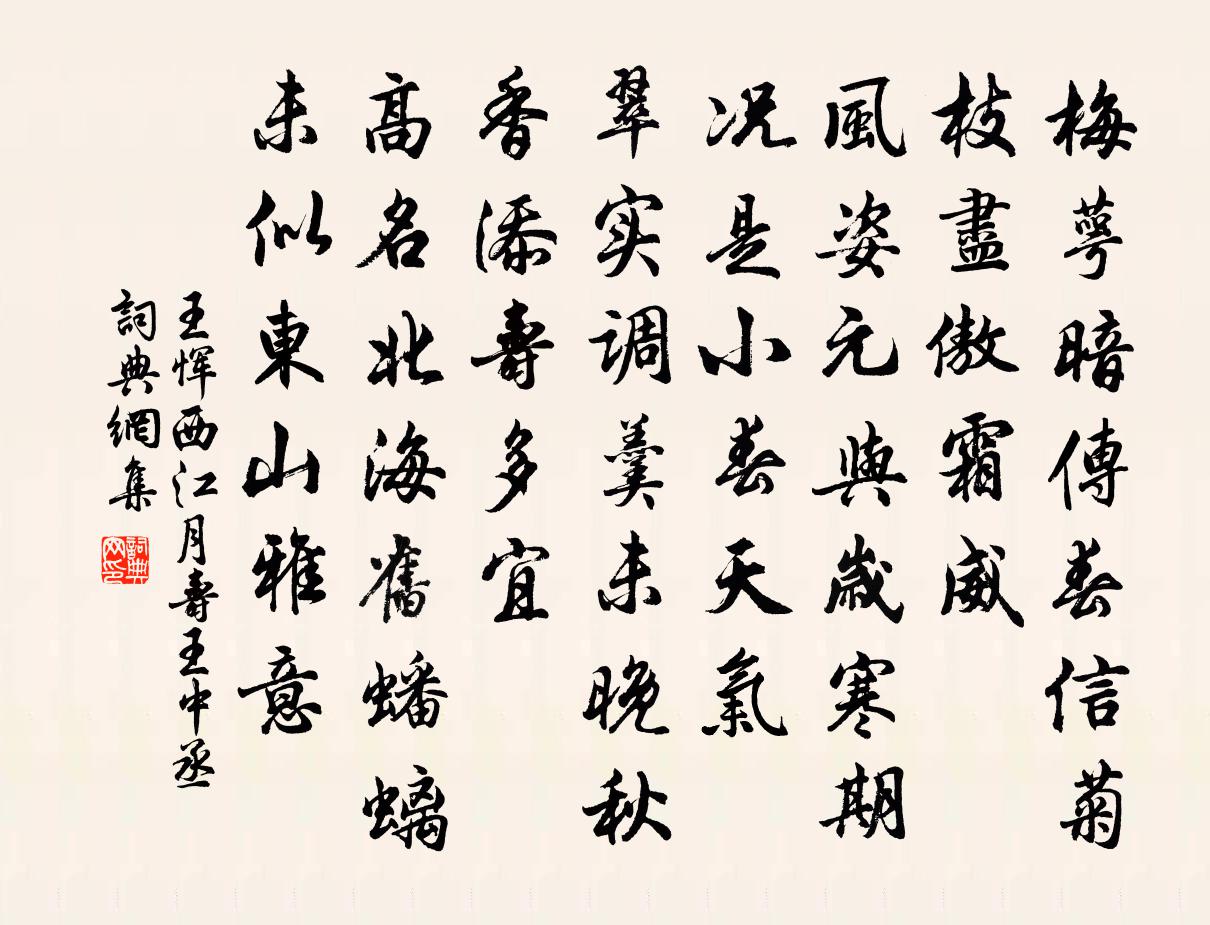 梅萼暗傳春信菊
枝盡傲霜威
風姿元與歲寒期
况是小春天氣
翠实调羹未晚秋
香添壽多宜
高名北海舊蟠螭
未似東山雅意
王恽西江月壽王中丞
詞典網集
詞典网印